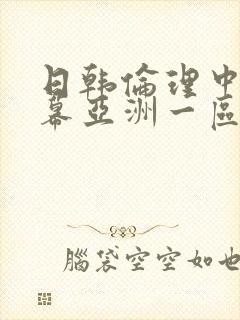 日韩倫理中
幕亞洲一區
腦袋空空如也